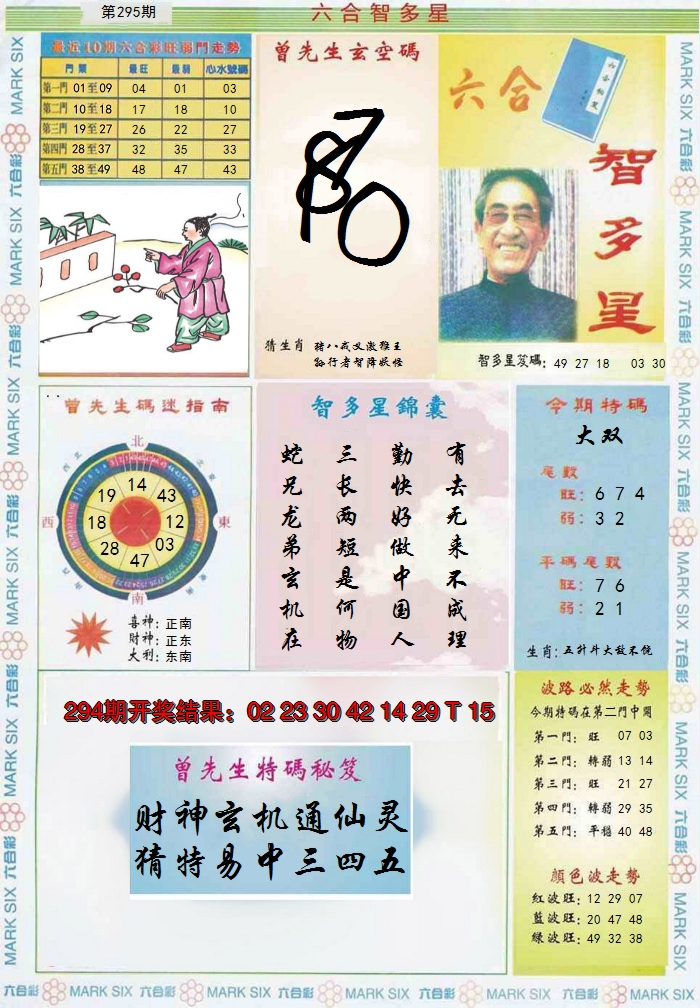 第295期
六合智多星
最近10期六合彩旺弱門走勢
門票 最旺 最弱 心水號碼
第一門 01至09 04 01 03
第二門 10至18 17 18 10
第三門 19至27 26 22 27
第四門 28至37 32 35 33
第五門 38至49 48 47 43
曾先生玄空碼
猜生肖 猪八戒义激猴王
孙行者智降妖怪
六合
智多星
智多星笈碼: 49 27 18 03 30
曾先生碼迷指南
北
西 東
南
14
43
12
03
47
28
18
19
喜神: 正南
財神: 正东
大利: 东南
智多星錦囊
蛇兄龙弟玄机在
三长两短是何物
勤快好做中国人
有去无来不成理
今期特碼
大双
尾數
旺: 6 7 4
弱: 3 2
平碼尾數
旺: 7 6
弱: 2 1
生肖: 五升斗大敌不饶
294期开奖结果: 02 23 30 42 14 29 T 15
曾先生特碼秘笈
财神玄机通仙灵
猜特易中三四五
波路必然走势
今期特碼在第二門中開
第一門: 旺 07 03
第二門: 轉弱 13 14
第三門: 旺 21 27
第四門: 轉弱 29 35
第五門: 平穩 40 48
顏色波走勢
紅波旺: 12 29 07
藍波旺: 20 47 48
绿波旺: 49 32 38
MARK SIX 六合彩